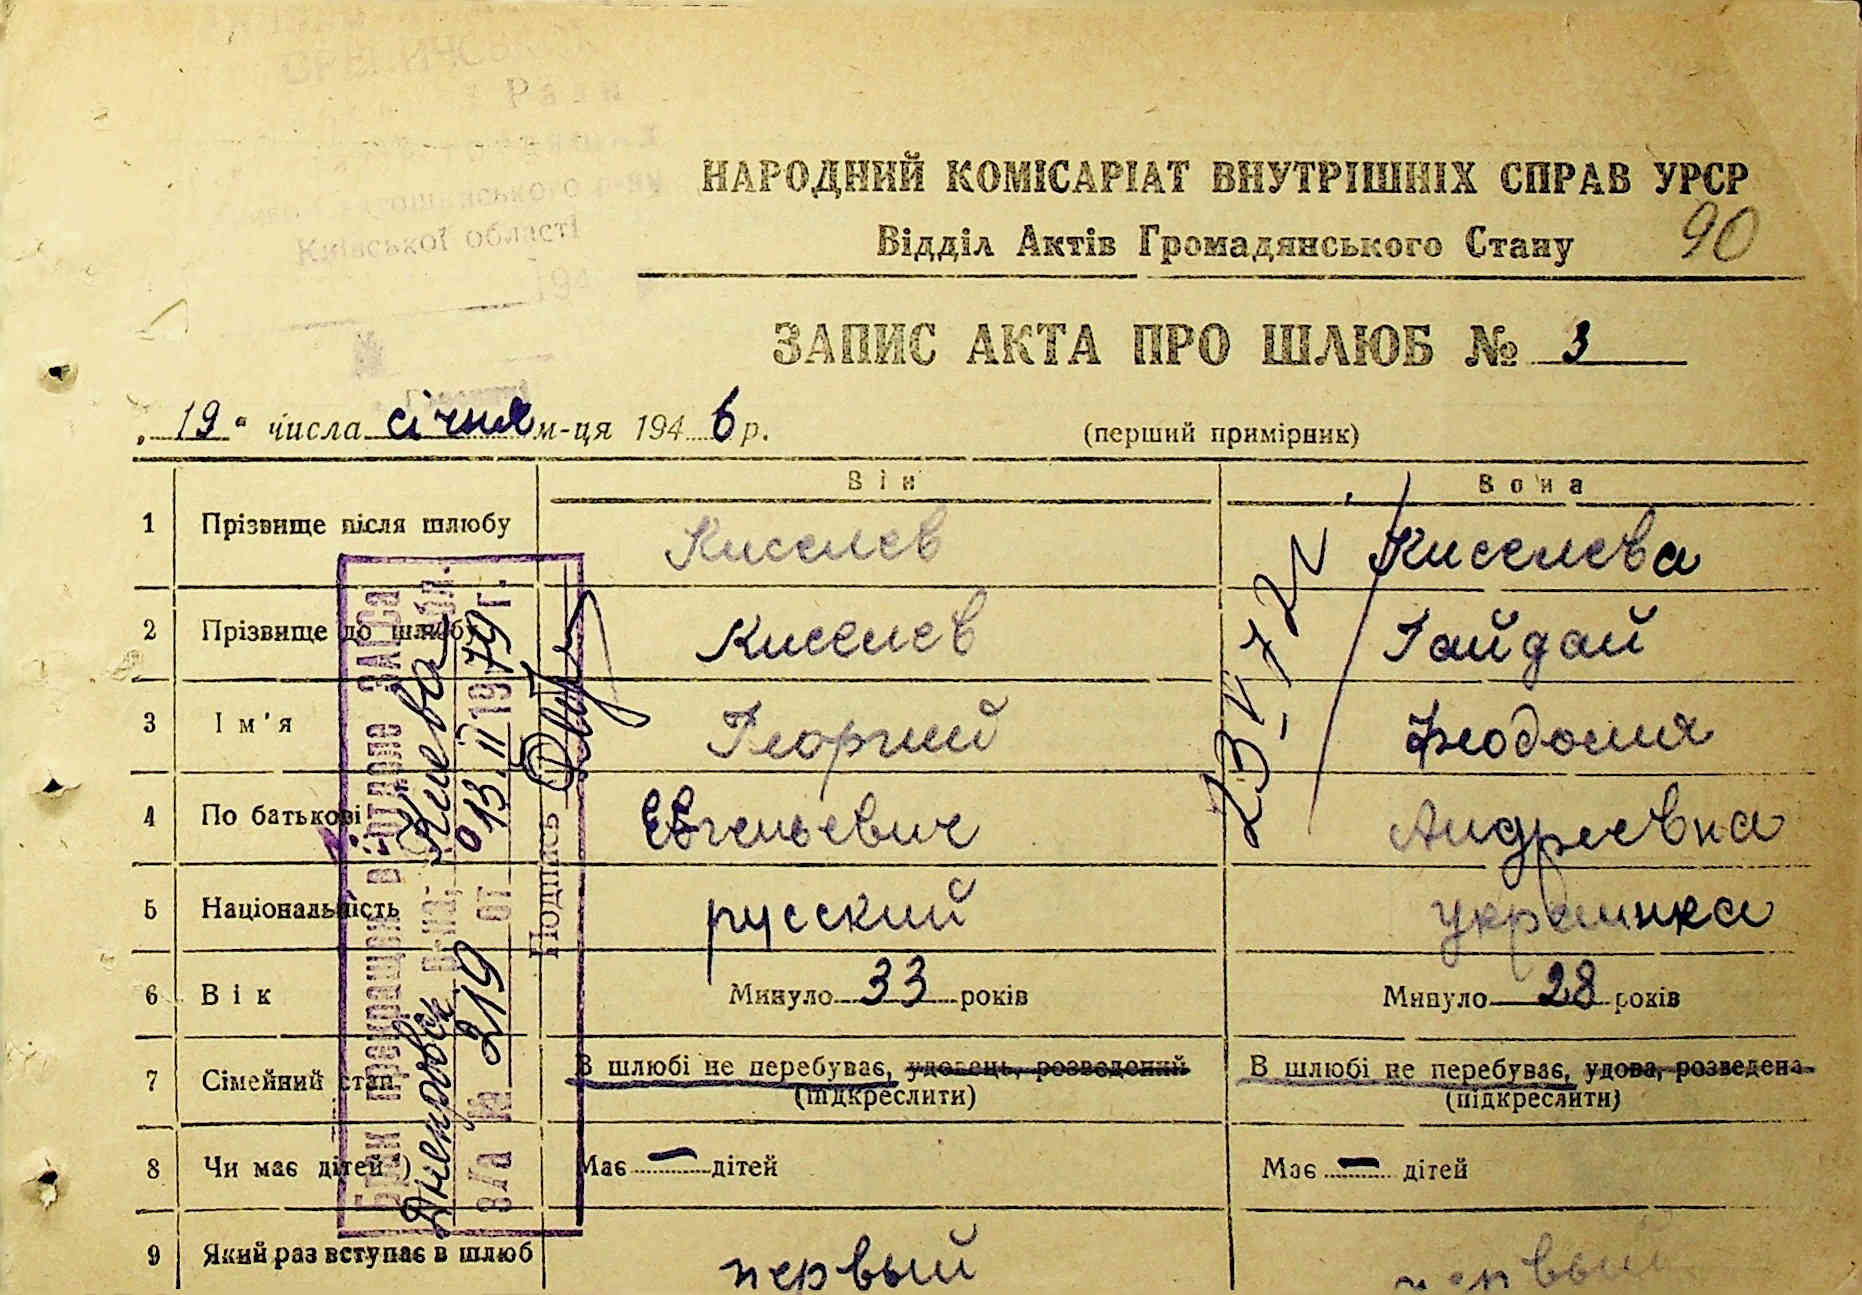 Ради
Київської області
194
НАРОДНИЙ КОМІСАРІАТ ВНУТРІШНІХ СПРАВ УРСР
Відділ Актів Громадянського Стану
90
ЗАПИС АКТА ПРО ШЛЮБ № 3
„19" числа січня м-ця 1946 р.
(перший примірник)
Він Вона
1 Прізвище після шлюбу Киселев Киселева
2 Прізвище до шлюбу Киселев Гайдай
3 Ім'я Георгий Феодосия
4 По батькові Евгеньевич Андреевна
5 Національність русский украинка
6 Вік Минуло 33 років Минуло 28 років
7 Сімейний стан В шлюбі не перебуває, удовець, розведений В шлюбі не перебуває, удова, розведена
(підкреслити) (підкреслити)
8 Чи має дітей Має — дітей Має — дітей
9 Який раз вступає в шлюб первый первый
Брак прекращен в отделе ЗАГСа
Днепровск р-на, Киева обл.
з/а № 219 от 13 II 1979 г.
Подпись